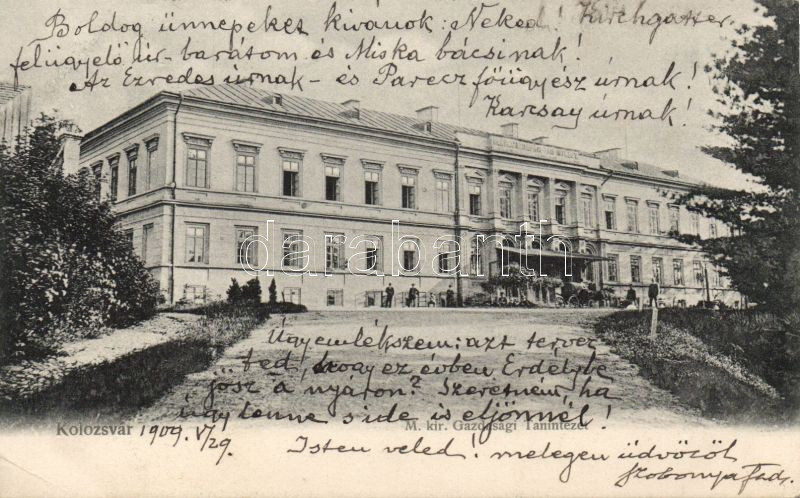 Boldog ünnepeket kivánok: Neked! Kirchgatter
felügyelő úr- barátom és Miska bácsinak!
Az Ezredes úrnak- és Parecz főügyész úrnak!
Karcsay úrnak!
darabanth
Úgyemlékszem: azt tervez
ted, hogy ez évben Erdélybe
jösz a nyáron? Szeretném, ha
úgy lenne s ide is eljönnél!
Kolozsvár 1909. V/29.
M. kir. Gazdasági Tanintézet
Isten veled! melegen üdvözöl